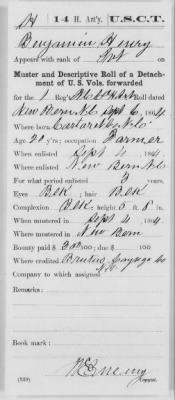 H 14 H. Art'y. U.S.C.T.
Benjamin Henry
Appears with rank of Pvt on
Muster and Descriptive Roll of a Detach-
ment of U. S. Vols. forwarded
for the 1 Reg't N.C. H. Art Roll dated
New Bern N.C. Sept 6, 1864.
Where born Carteret Co N.C.
Age 20 y'rs; occupation Farmer
When enlisted Sept 4, 1864
Where enlisted New Bern N.C.
For what period enlisted 3 years.
Eyes Blk; hair Blk
Complexion Blk; height 5 ft. 8 in.
When mustered in Sept 4, 1864
Where mustered in New Bern
Bounty paid $ 300/100; due $ /100
Where credited Brutus, Cayuga Co
Company to which assigned
Remarks:
Book mark:
(339) Copyist.